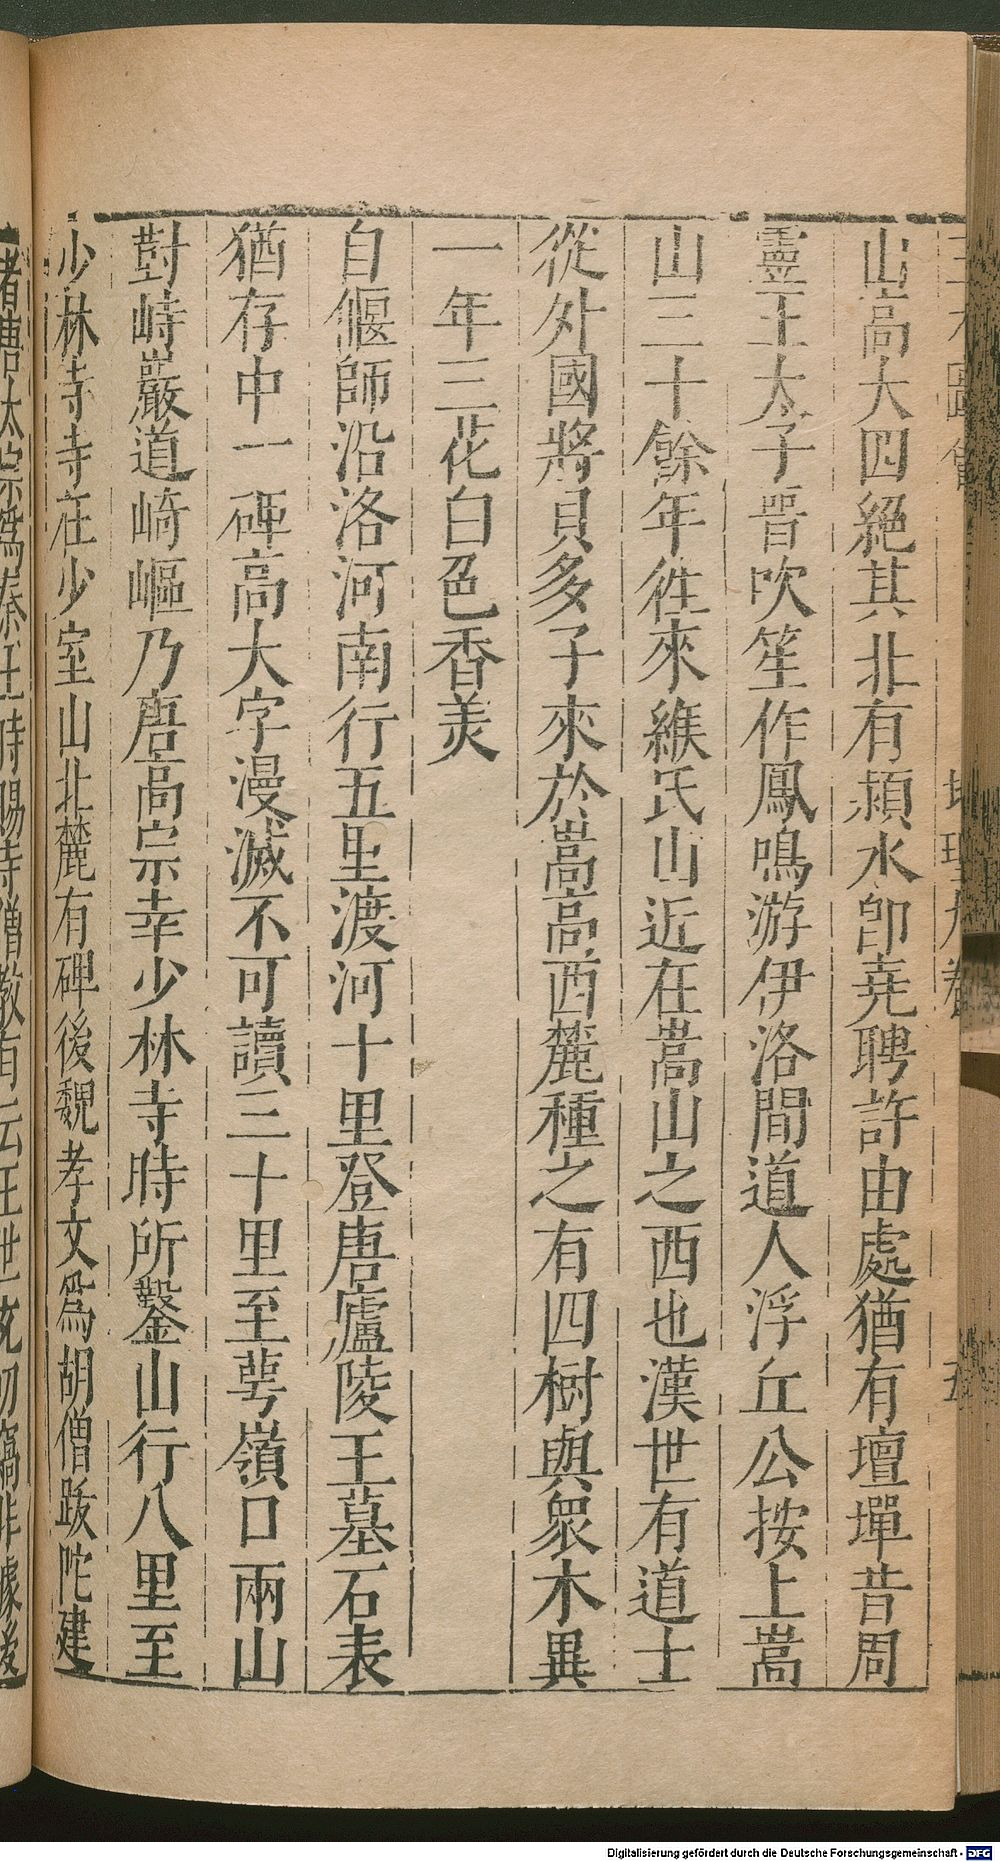 三才圖會 地理九卷 五
山高大四絕其北有潁水卽堯聘許由處猶有壇墠昔周
靈王太子晉吹笙作鳳鳴游伊洛間道人浮丘公按上嵩
山三十餘年徃來緱氏山近在嵩山之西也漢世有道士
從外國將貝多子來於嵩高西麓種之有四樹與衆木異
一年三花白色香美
自偃師沿洛河南行五里渡河十里登唐廬陵王墓石表
猶存中一碑高大字漫滅不可讀三十里至萼嶺口兩山
對峙巖道崎嶇乃唐高宗幸少林寺時所鑿山行八里至
少林寺寺在少室山北麓有碑後魏孝文爲胡僧跋陀建
者唐太宗爲秦王時賜寺僧教有云王世充叨竊非據後
Digitalisierung gefördert durch die Deutsche Forschungsgemeinschaft - DFG